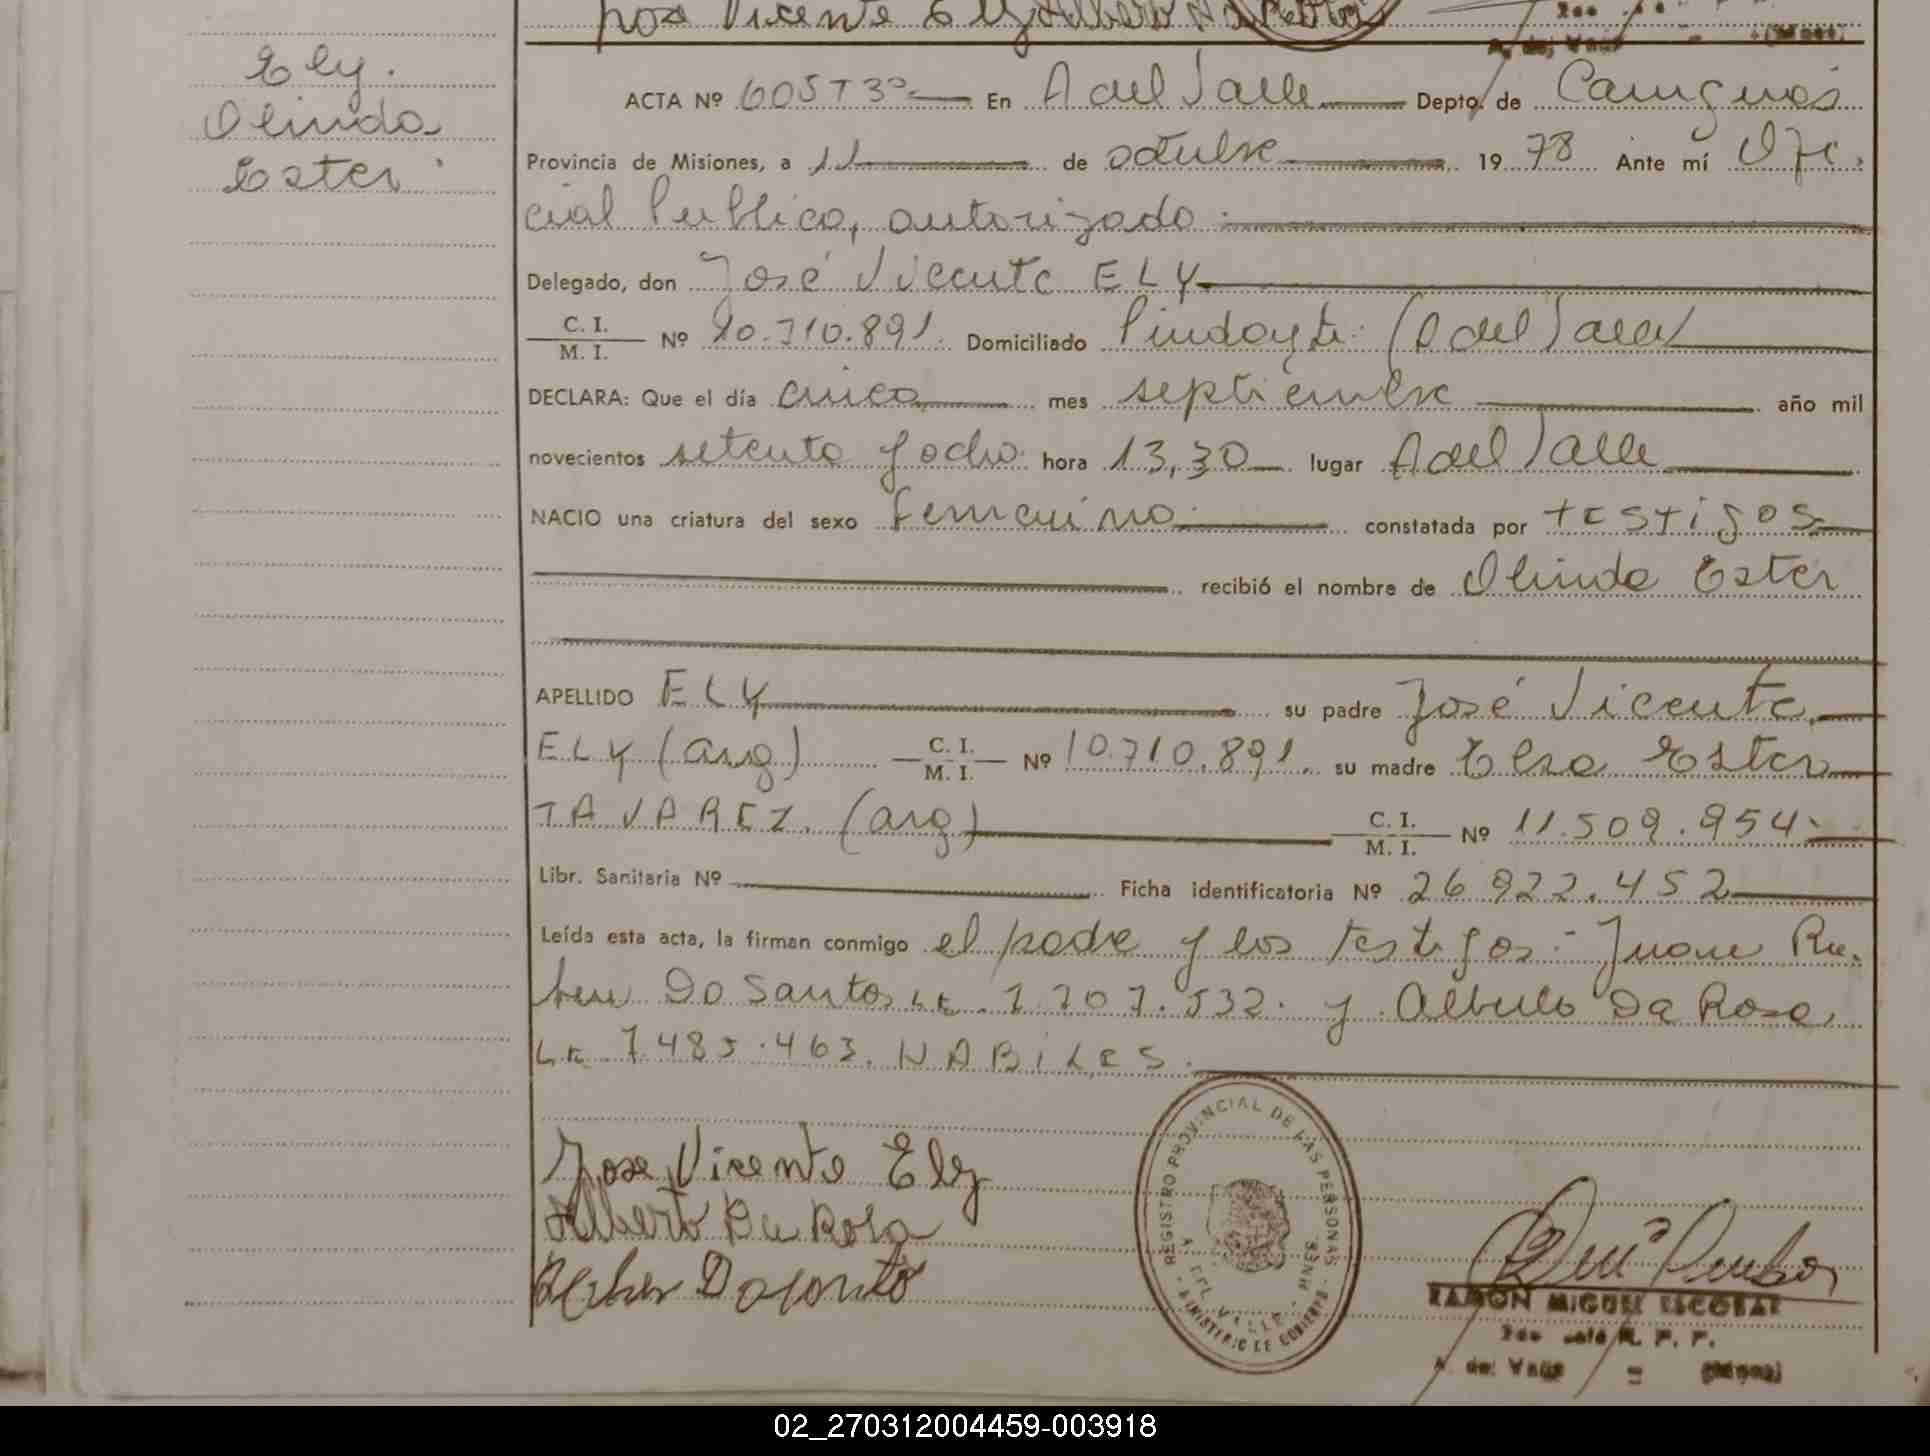 por Vicente Ely Alberto Da Rosa
A. del Valle - (Mnes)
Ely.
Olinda
Ester
ACTA Nº 605T3º En A del Valle Depto. de Cainguás
Provincia de Misiones, a 11 de octubre 1978 Ante mí Ofi-
cial Publico, autorizado.
Delegado, don José Vicente ELY
C. I. M. I. Nº 10.710.891. Domiciliado Pindayti. (A del Valle)
DECLARA: Que el día cinco mes septiembre año mil
novecientos setenta y ocho hora 13,30 lugar A del Valle
NACIO una criatura del sexo femenino constatada por testigos
recibió el nombre de Olinda Ester
APELLIDO ELY su padre José Vicente
ELY (arg) C. I. M. I. Nº 10.710.891. su madre Elsa Ester
TAVAREZ. (arg) C. I. M. I. Nº 11.509.954.
Libr. Sanitaria Nº Ficha identificatoria Nº 26.922.452
Leída esta acta, la firman conmigo el padre y los testigos: Juan Ru-
ben Do Santos LE. 7.707.532. y Alberto Da Rosa
LE 7.485.463. HABILES.
Jose Vicente Ely
Alberto Da Rosa
REGISTRO PROVINCIAL DE LAS PERSONAS
A. DEL VALLE - MNES
MINISTERIO DE GOBIERNO
RAMON MIGUEL ESCOBAR
2do Jefe R. P. P.
A. del Valle - (Mnes)
02_270312004459-003918